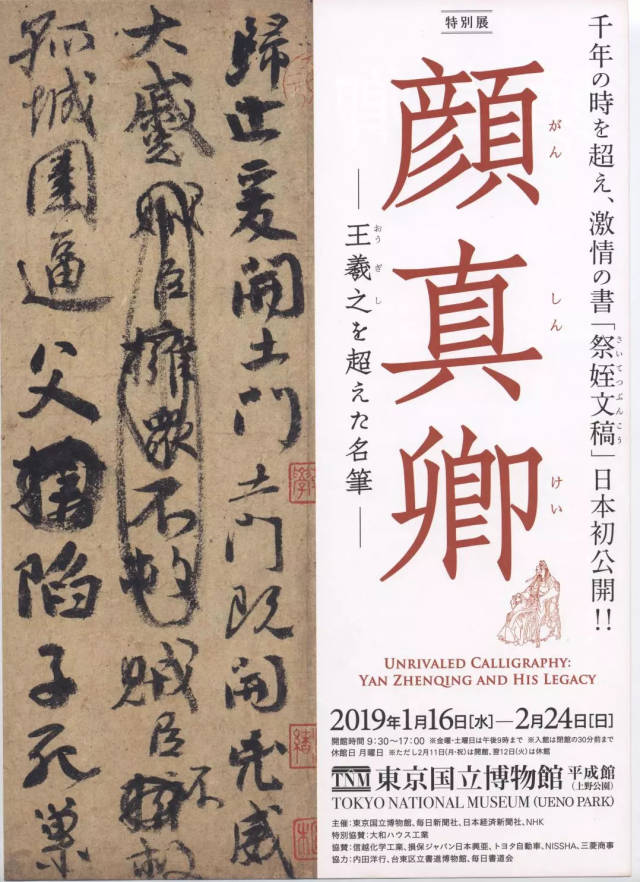 千年の時を超え、激情の書「祭姪文稿」日本初公開!!
さいてつぶんこう
特別展
顔真卿
がん しん けい
―王羲之を超えた名筆―
おう ぎ し
UNRIVALED CALLIGRAPHY:
YAN ZHENQING AND HIS LEGACY
2019年1月16日[水]―2月24日[日]
開館時間 9:30〜17:00 ※金曜・土曜日は午後9時まで ※入館は閉館の30分前まで
休館日 月曜日 ※ただし2月11日(月・祝)は開館、翌12日(火)は休館
TNM 東京国立博物館 平成館
(上野公園)
TOKYO NATIONAL MUSEUM (UENO PARK)
主催:東京国立博物館、毎日新聞社、日本経済新聞社、NHK
特別協賛:大和ハウス工業
協賛:信越化学工業、損保ジャパン日本興亜、トヨタ自動車、NISSHA、三菱商事
協力:内田洋行、台東区立書道博物館、毎日書道会
歸止爰開土門土門既開兇威
大蹙賊臣擁衆不救賊臣不救
孤城圍逼父陷子死巢